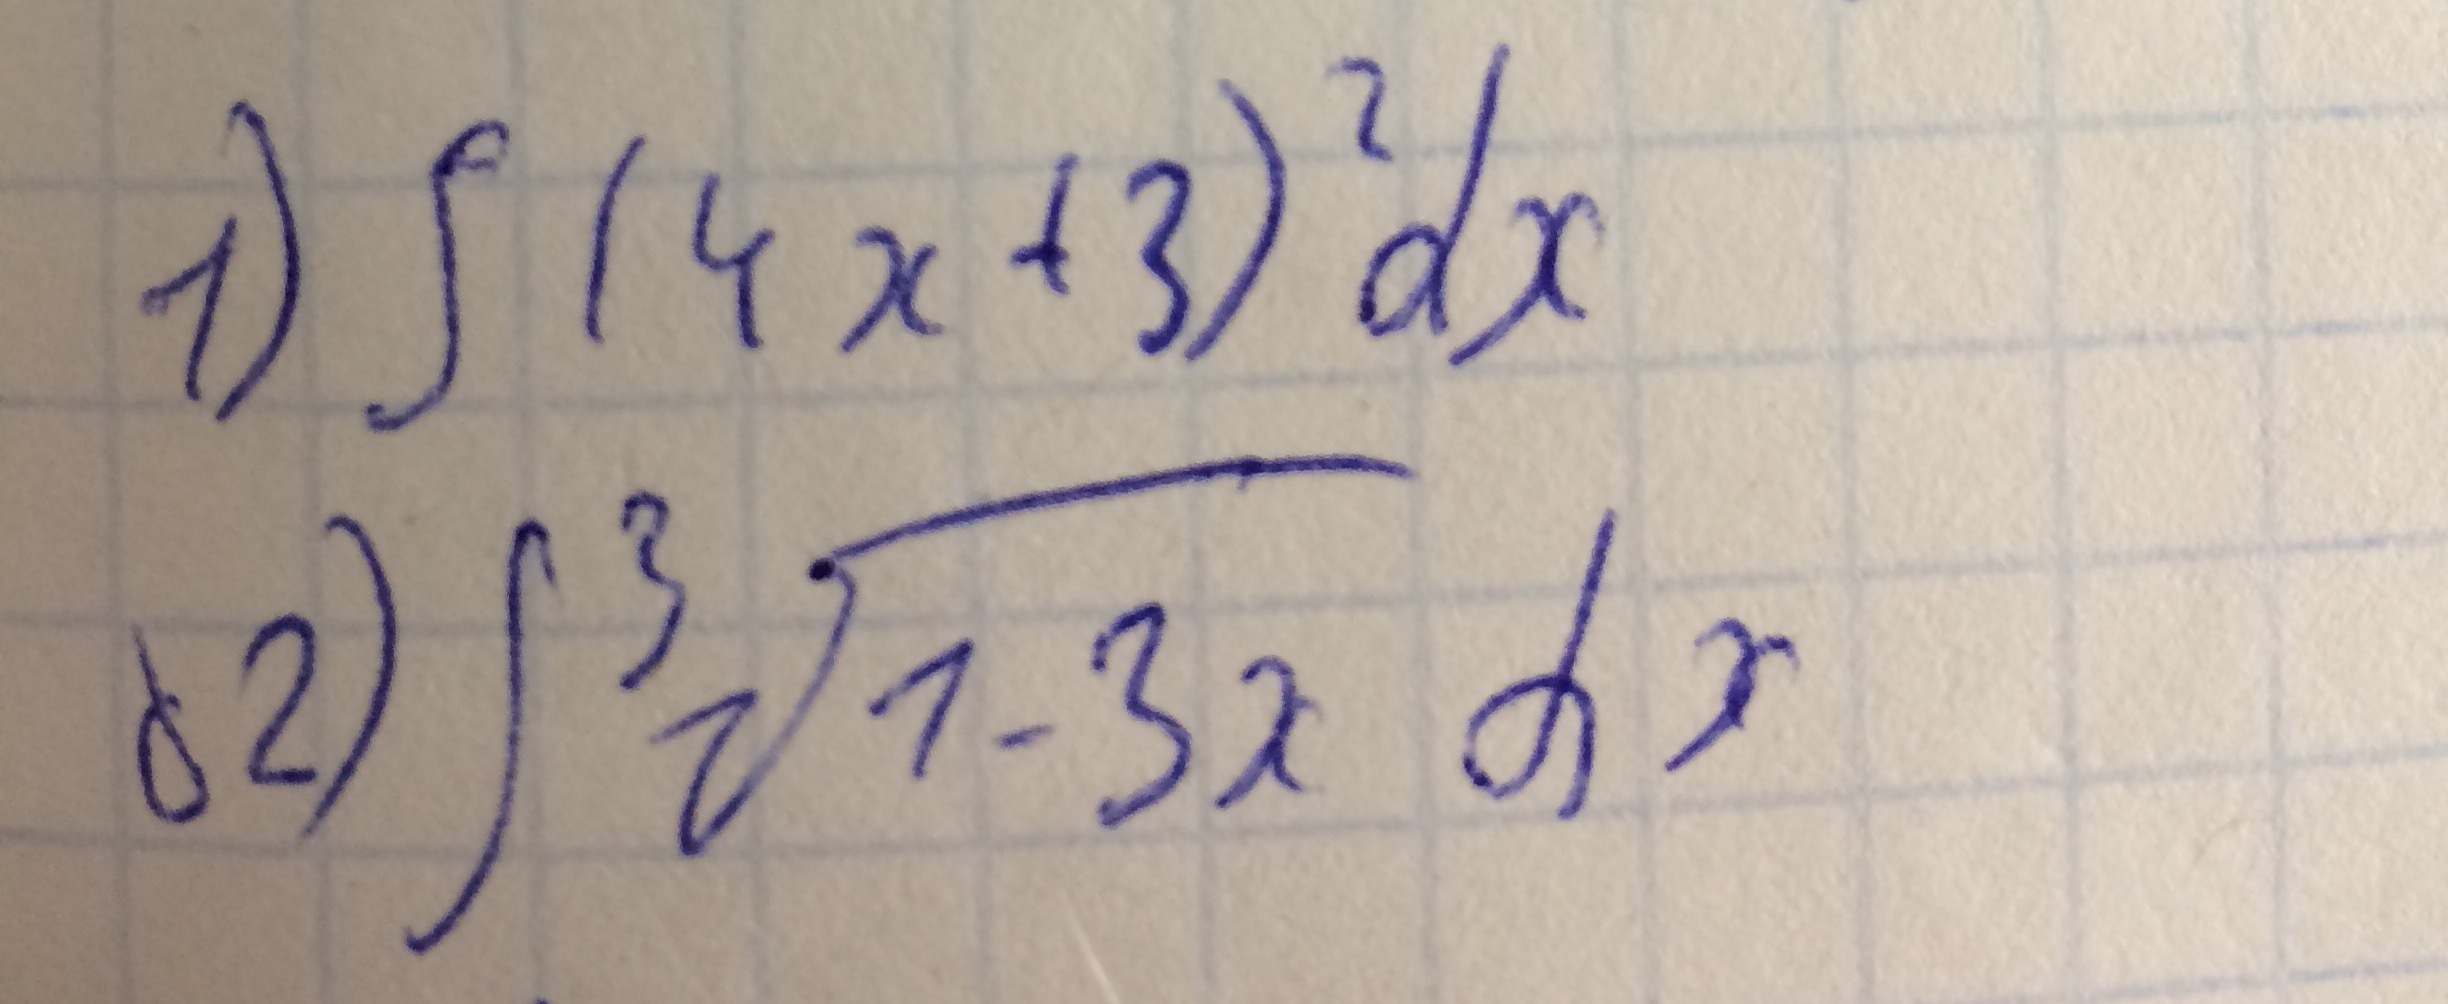 1) ∫ (4x+3)²dx
62) ∫ ³√1-3x dx